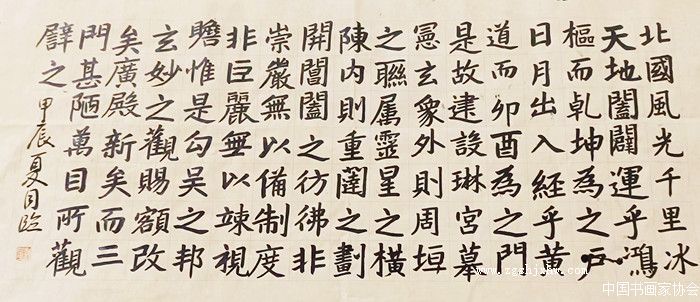 北國風光千里冰
天地闔闢運乎鴻
樞而乾坤為之戶
日月出入經乎黃
道而卯酉為之門
是故建設琳宮墓
憲玄象外則周垣
之聯属靈星之橫
陳内則重闥之劃
開閶闔之彷彿非
崇嚴無以備制度
非巨麗無以竦視
瞻惟是勾吳之邦
玄妙之觀賜額改
矣廣殿新矣而三
門甚陋萬目所觀
譬之
甲辰夏
臨
中国书画家协会